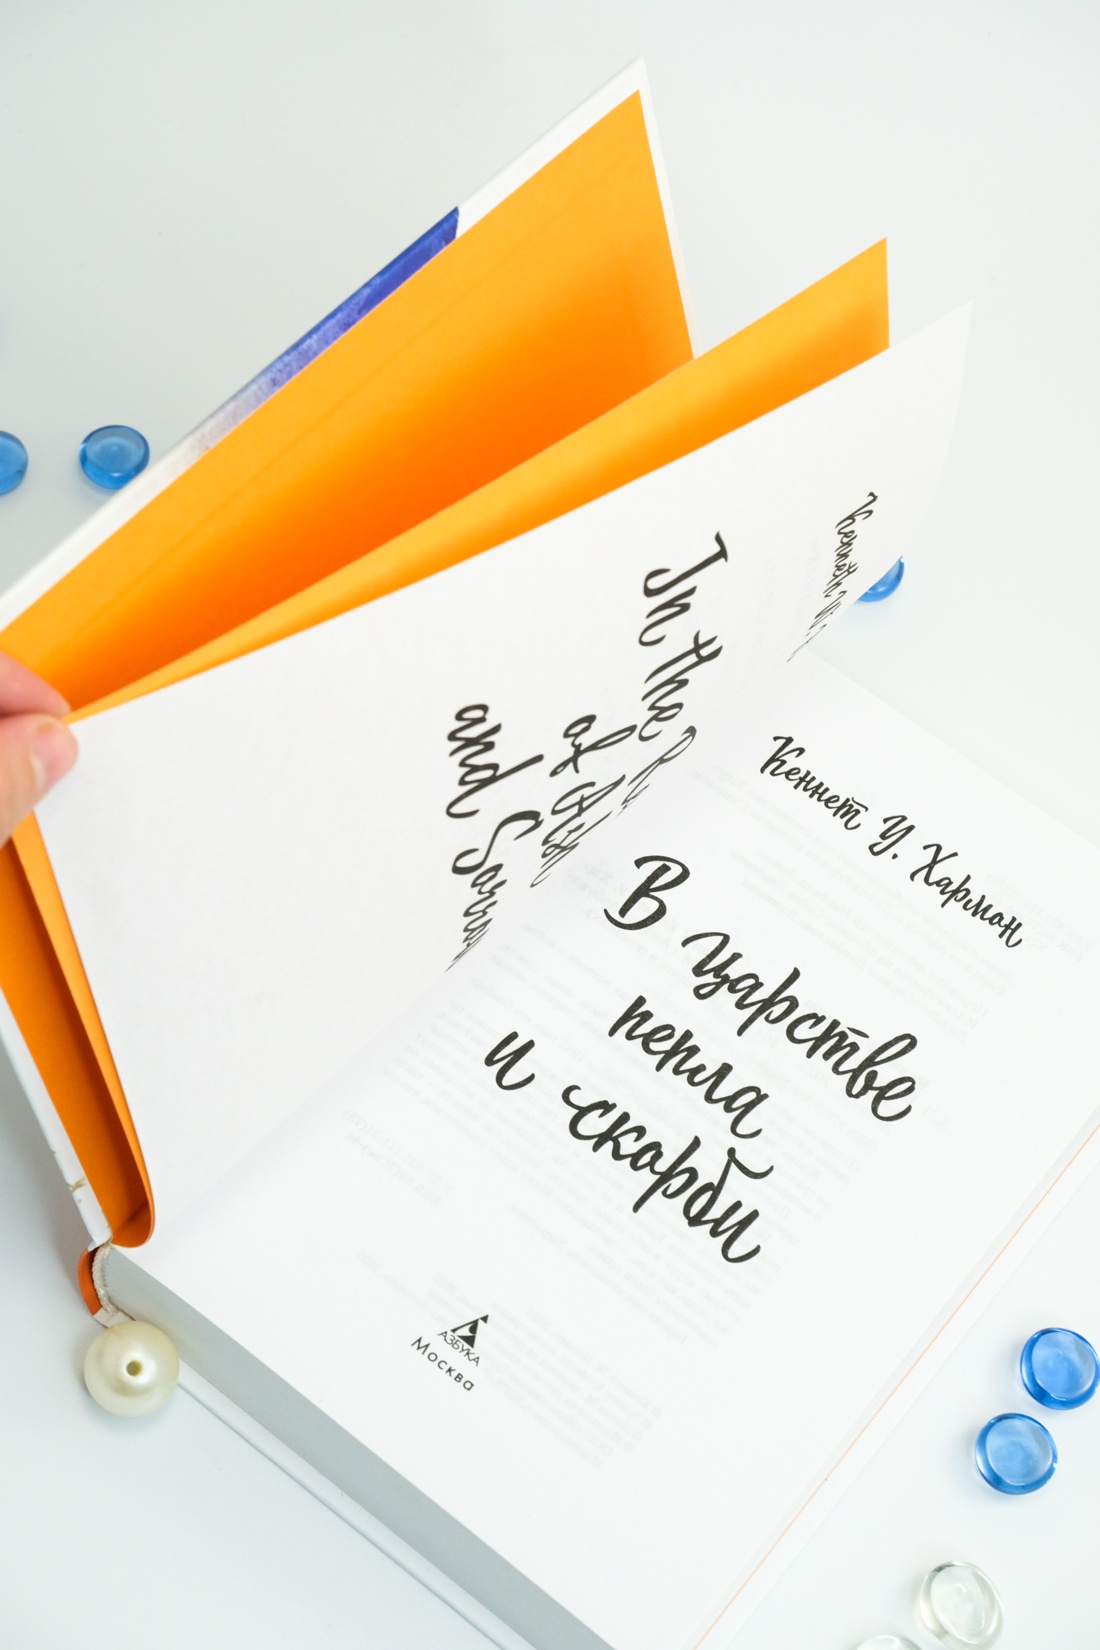 Kenneth W.
In the
of Ash
and Sorrow
Кеннет У. Харман
В царстве
пепла
и скорби
АЗБУКА
Москва